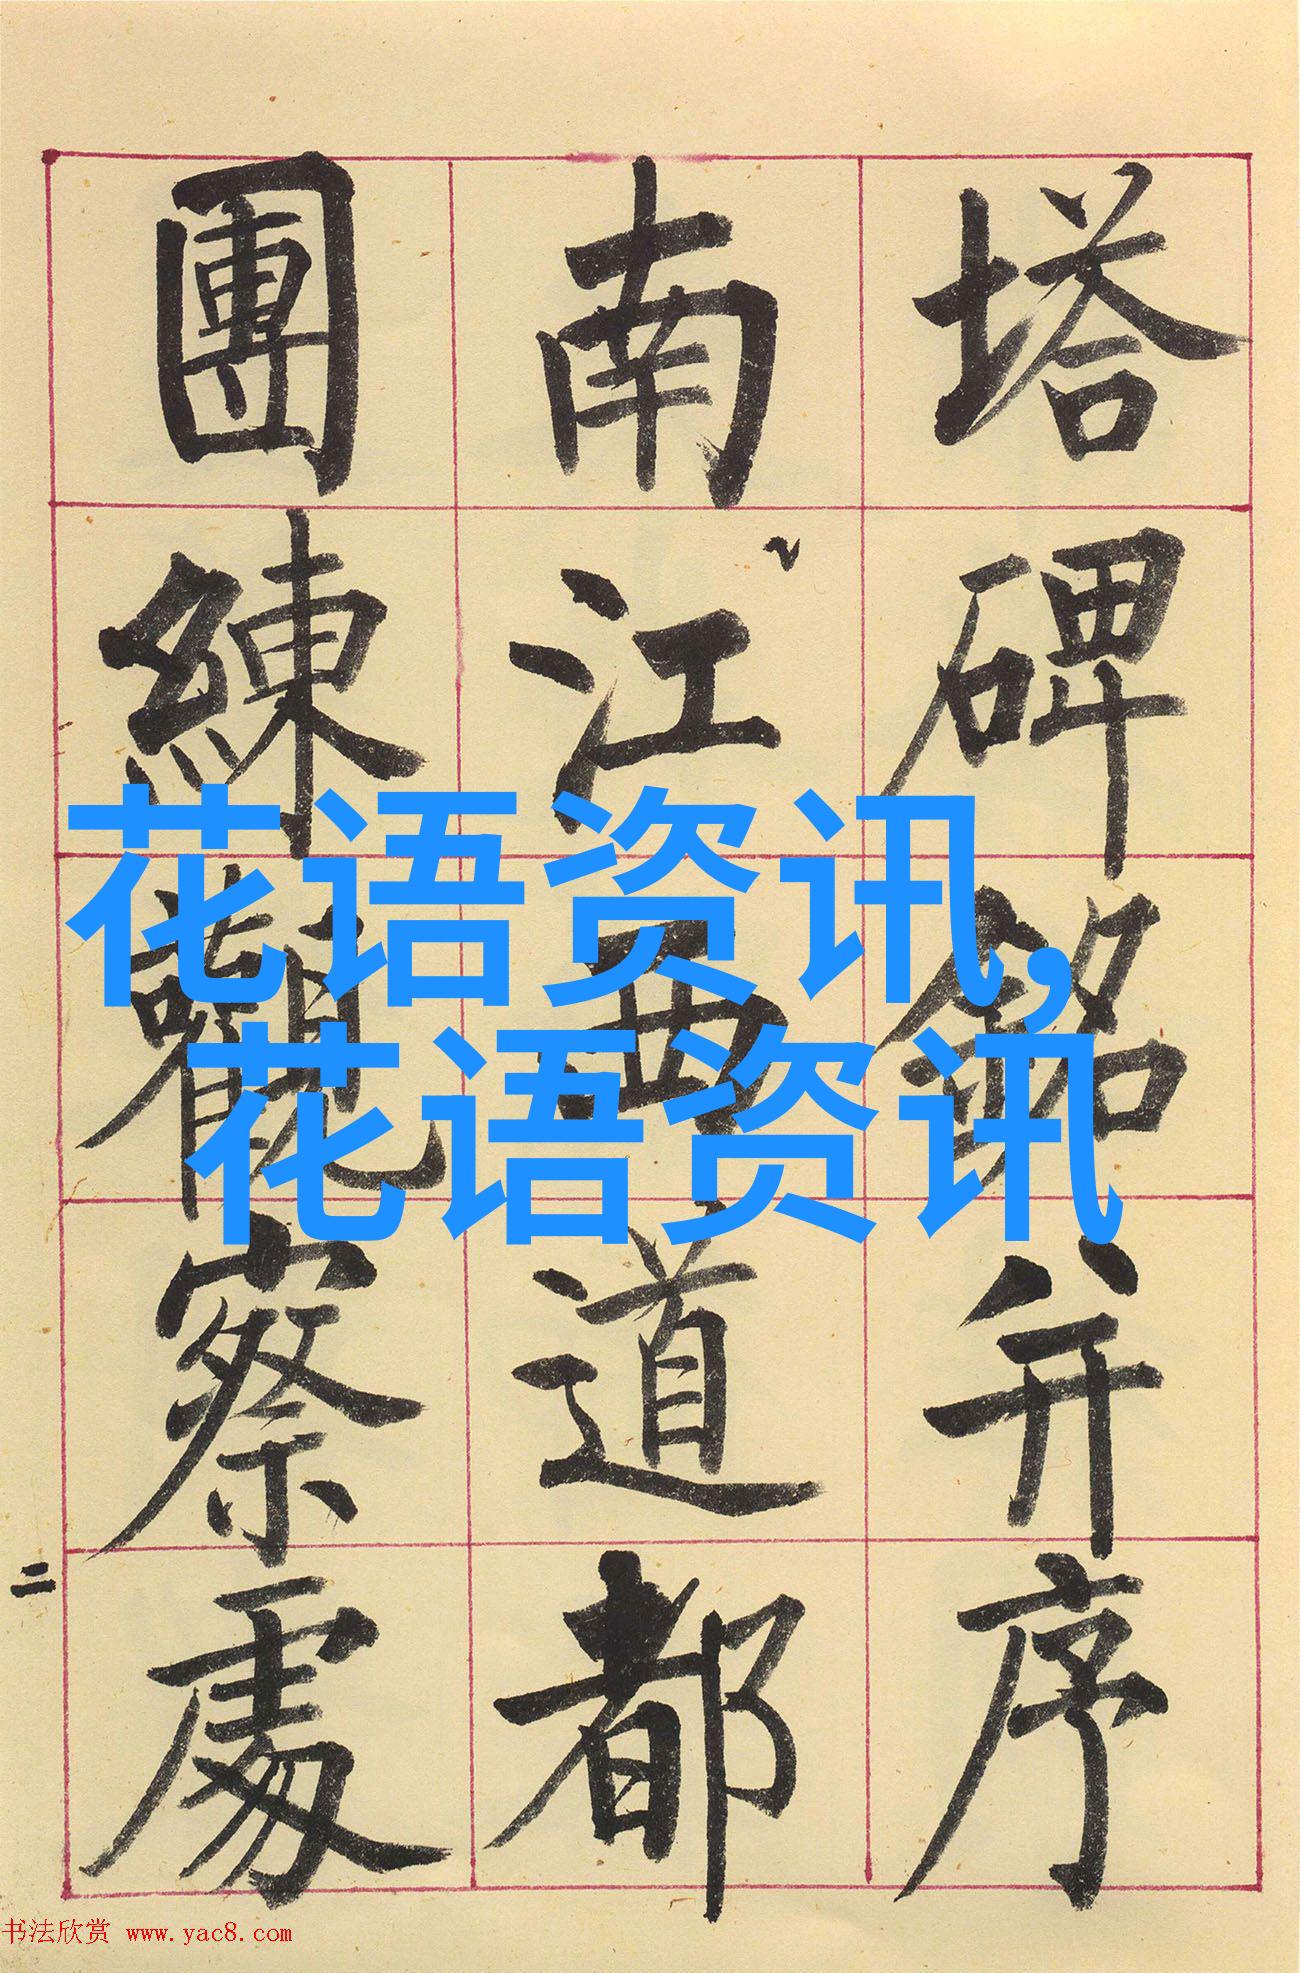 塔碑銘并序
南江西道都
團練觀察處
二
花语资讯,
花语资讯
书法欣赏 www.yac8.com